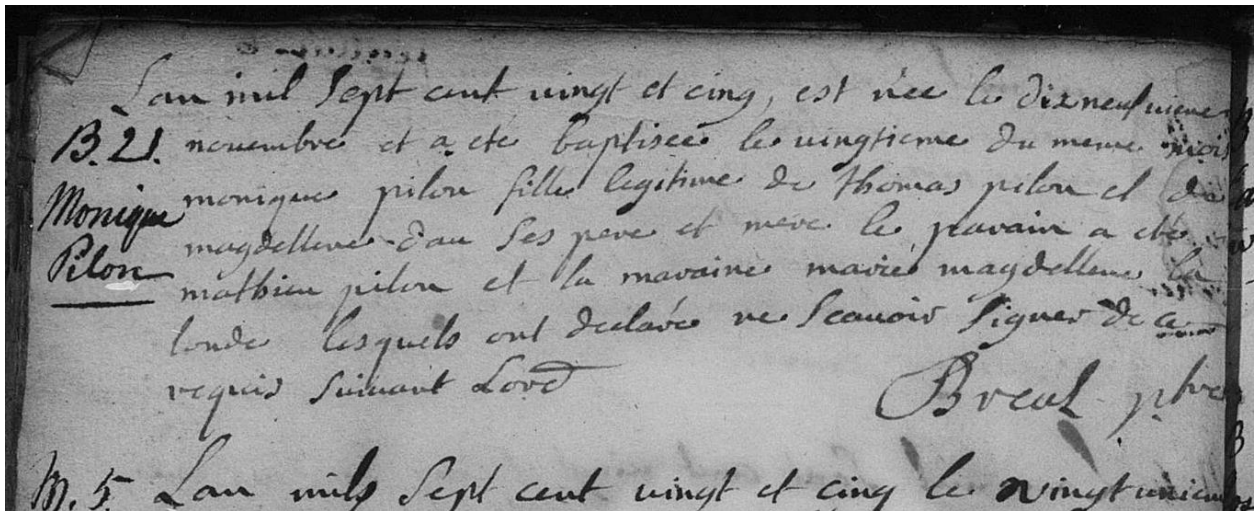 Lan mil Sept cent vingt et cinq, est née le dixneufvieme
B. 21. novembre et a ete baptisée le vingtieme du meme mois
Monique monique pilon fille legitime de thomas pilon et de
Pilon magdellene dau Ses pere et mere le parain a ete
mathieu pilon et la maraine marie magdellene la
londe lesquels ont declaré ne Scauoir Signer de ce
requis Suiuant Lord
Breul ptre
M. 5. Lan mils Sept cent vingt et cinq le vingtunieme